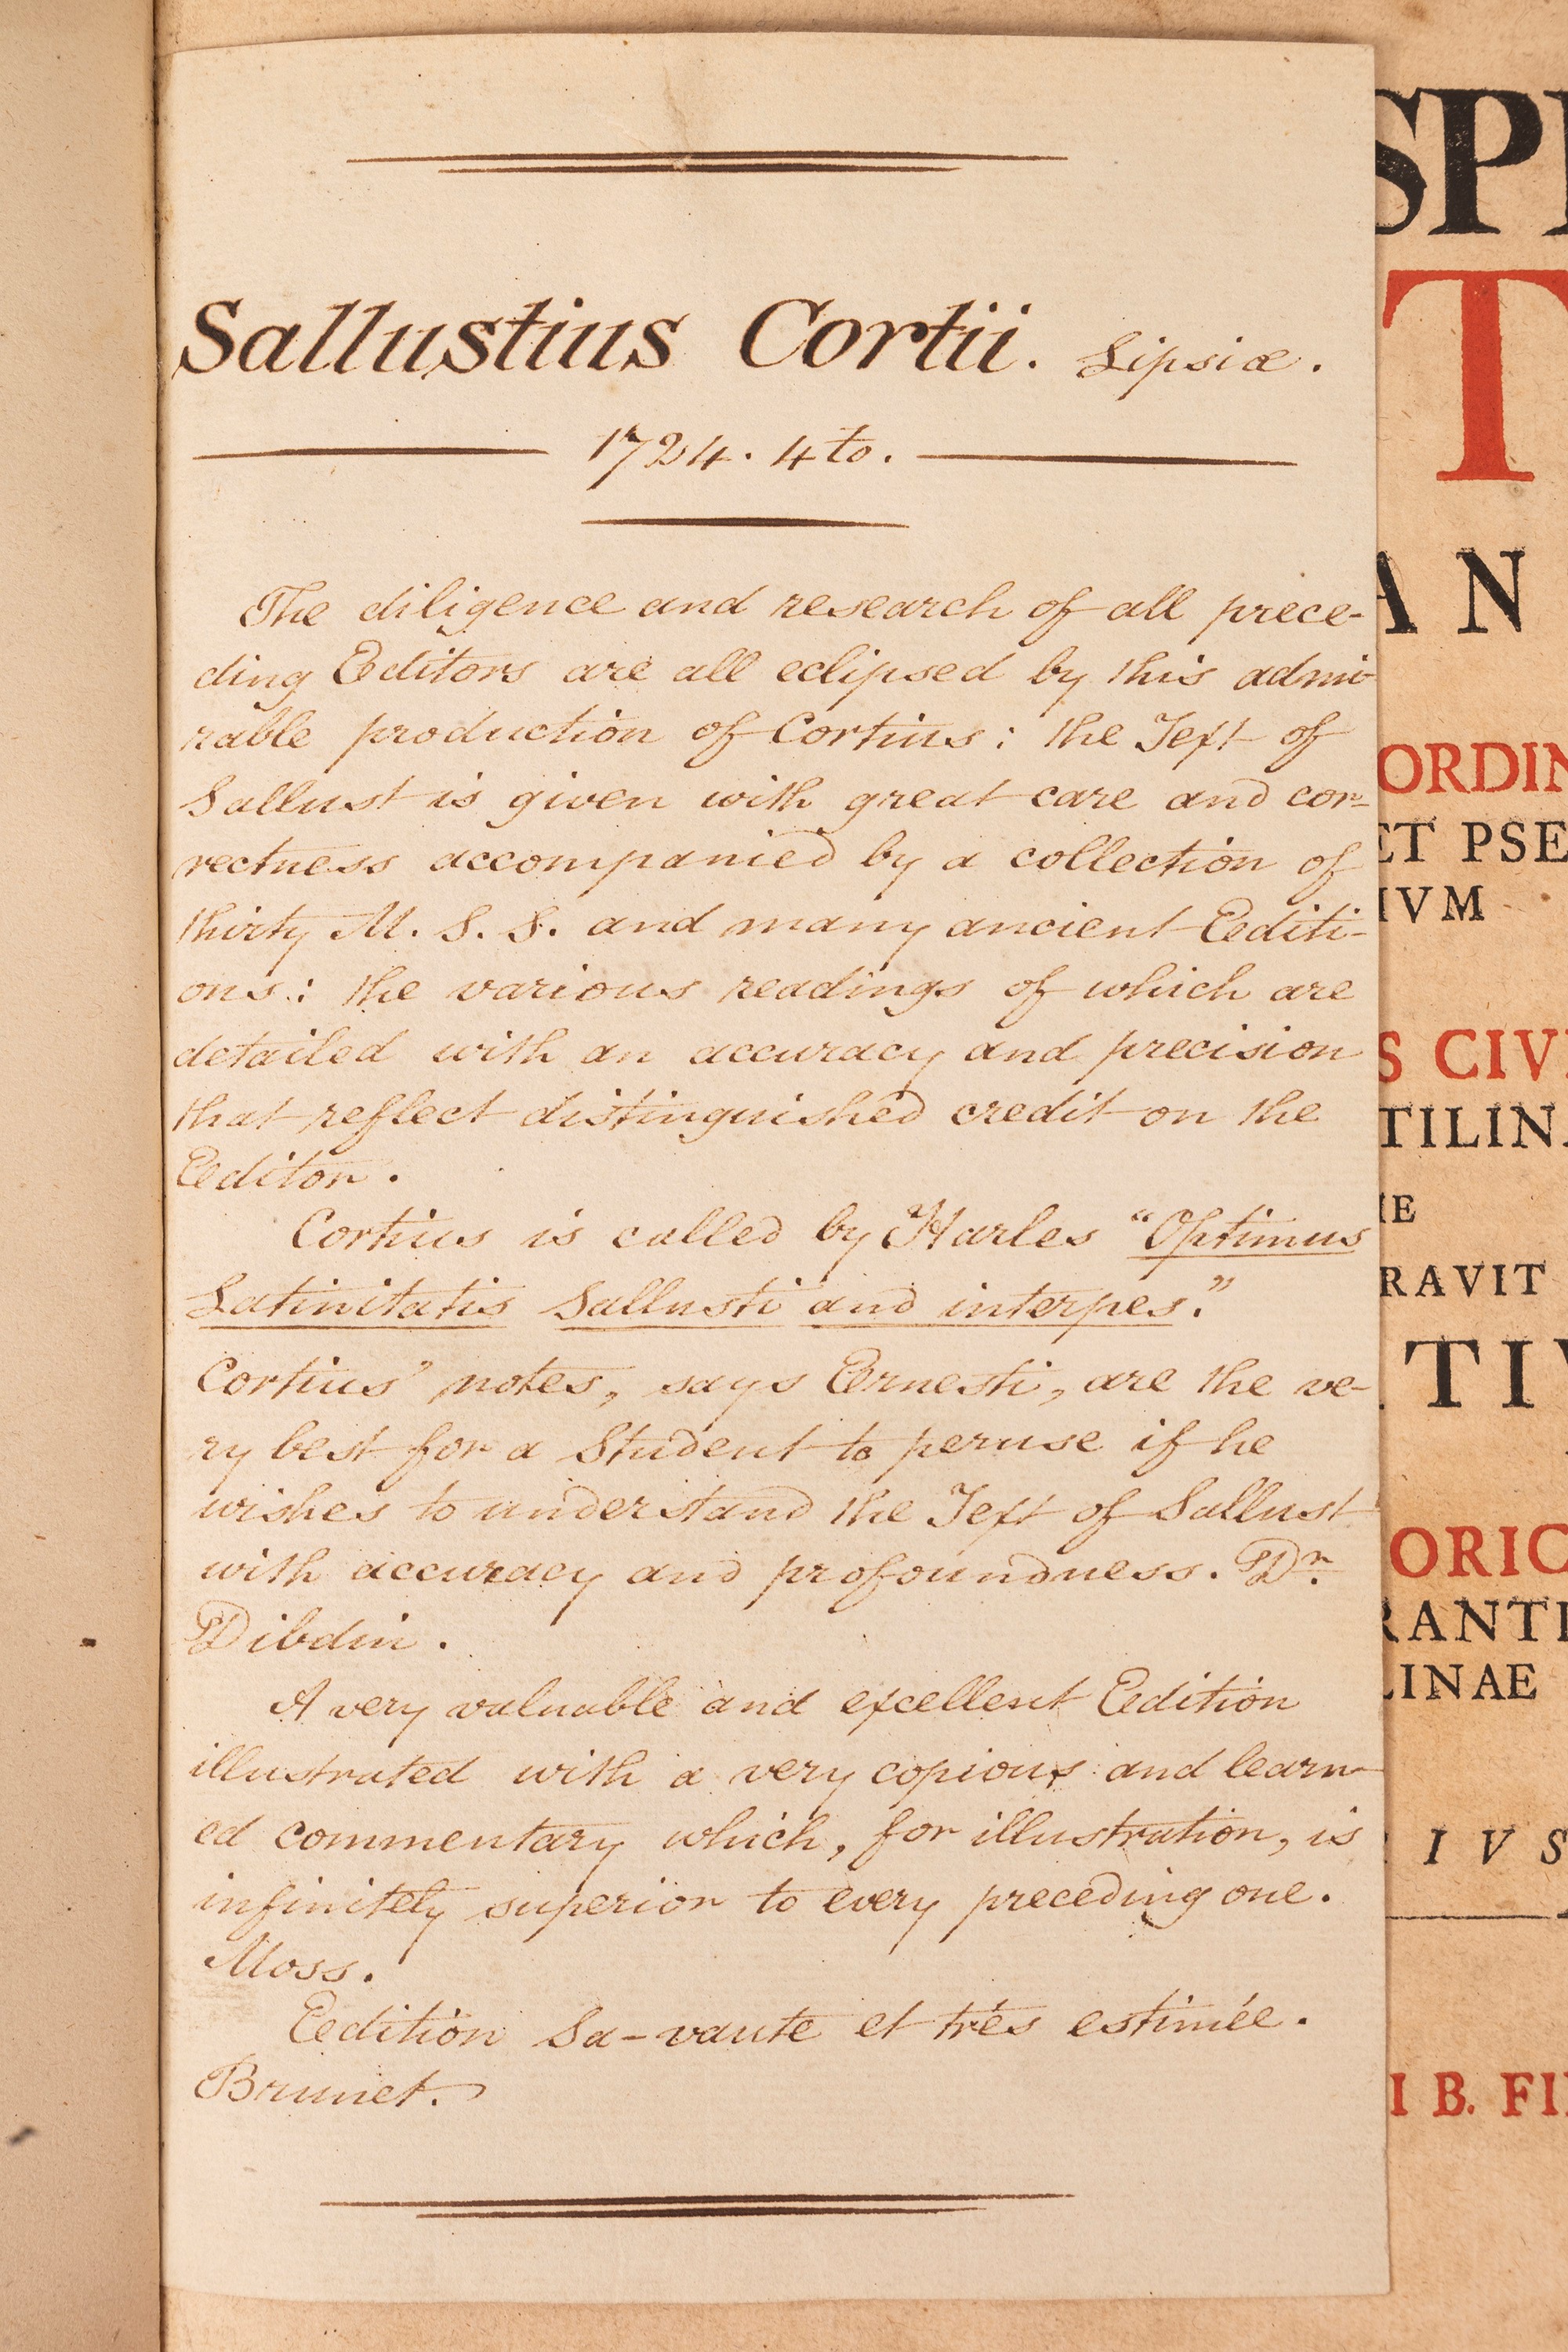 Sallustius Cortii. Lipsiæ.
1724. 4to.
The diligence and research of all prece-
ding Editors are all eclipsed by this admi-
rable production of Cortius: the Text of
Sallust is given with great care and cor-
rectness accompanied by a collection of
thirty M. S. S. and many ancient Editi-
ons: the various readings of which are
detailed with an accuracy and precision
that reflect distinguished credit on the
Editor.
Cortius is called by Harles "Optimus
Latinitatis Sallusti and interpes."
Cortius' notes, says Ernesti, are the ve-
ry best for a Student to peruse if he
wishes to understand the Text of Sallust
with accuracy and profoundness. Dr.
Dibdin.
A very valuable and excellent Edition
illustrated with a very copious and learn-
ed commentary which, for illustration, is
infinitely superior to every preceding one.
Moss.
Edition Sa-vante et très estimée.
Brunet.
SP
T
AN
ORDIN
ET PSE
IVM
S CIV
TILIN
IE
RAVIT
TI
ORIC
RANTI
LINAE
IVS
I B. FI